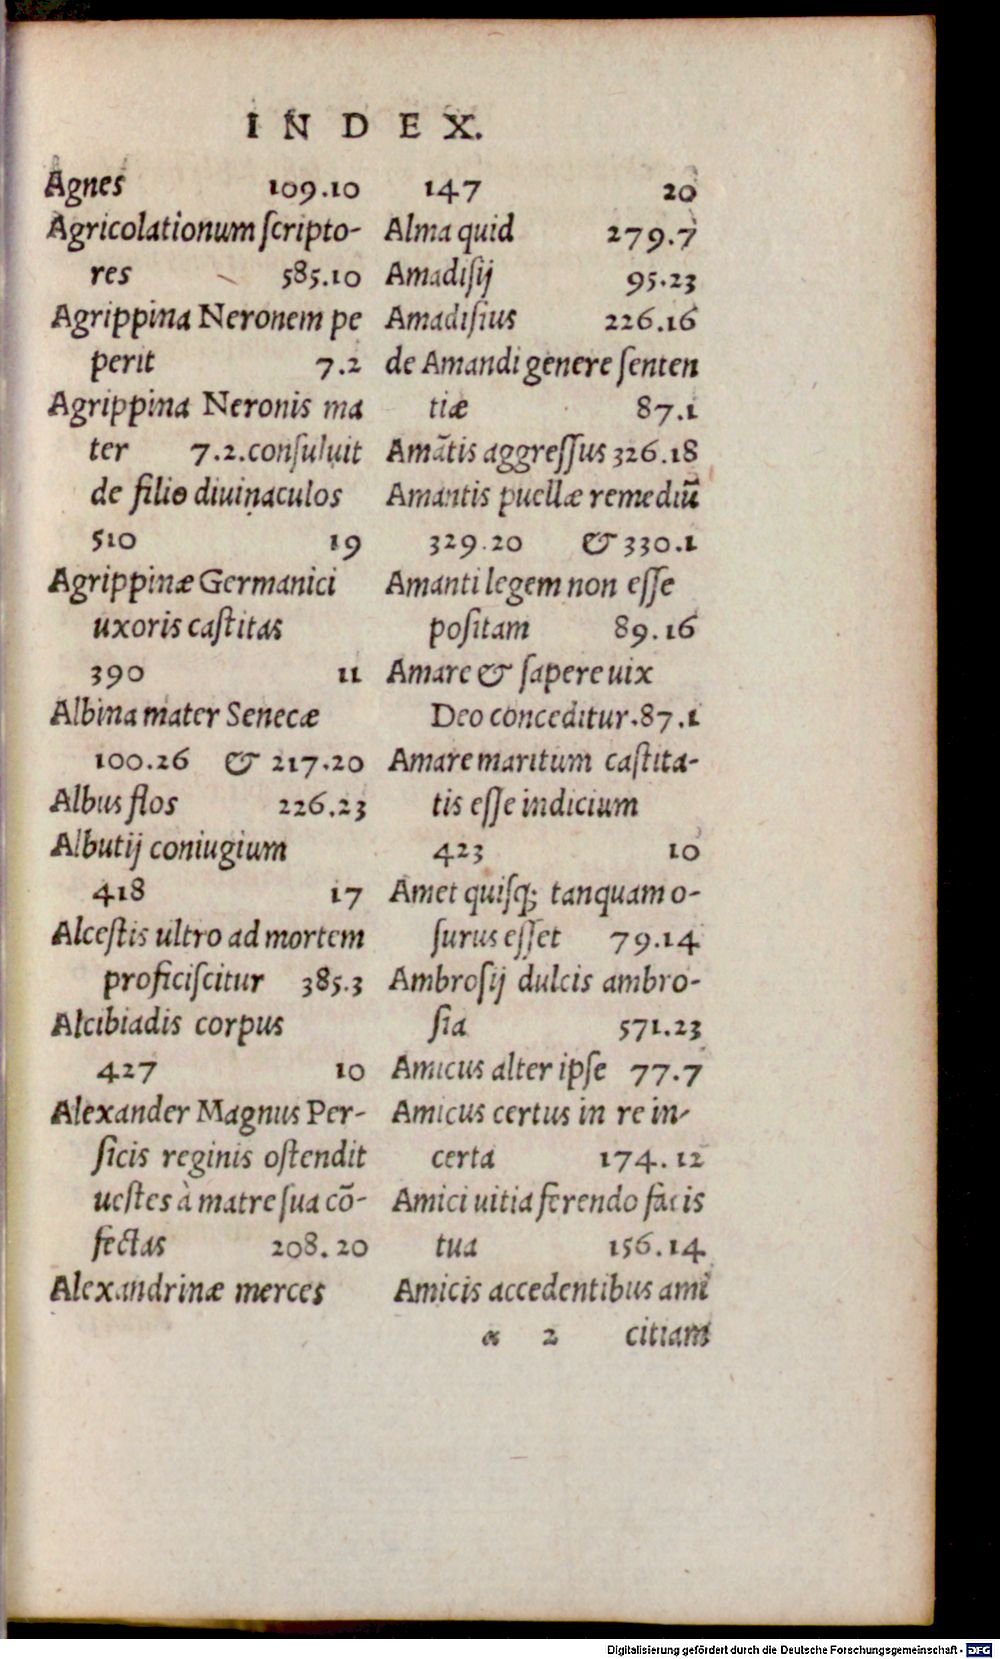 INDEX.
Agnes 109.10
Agricolationum ſcripto-
res 585.10
Agrippina Neronem pe
perit 7.2
Agrippina Neronis ma
ter 7.2.conſuluit
de filio diuinaculos
510 19
Agrippinæ Germanici
uxoris caſtitas
390 11
Albina mater Senecæ
100.26 & 217.20
Albus flos 226.23
Albutij coniugium
418 17
Alceſtis ultro ad mortem
proficiſcitur 385.3
Alcibiadis corpus
427 10
Alexander Magnus Per-
ſicis reginis oſtendit
ueſtes à matre ſua cõ-
fectas 208.20
Alexandrinæ merces
147 20
Alma quid 279.7
Amadiſij 95.23
Amadiſius 226.16
de Amandi genere ſenten
tiæ 87.1
Amãtis aggreſſus 326.18
Amantis puellæ remediũ
329.20 & 330.1
Amanti legem non eſſe
poſitam 89.16
Amare & ſapere uix
Deo conceditur.87.1
Amare maritum caſtita-
tis eſſe indicium
423 10
Amet quiſq; tanquam o-
ſurus eſſet 79.14
Ambroſij dulcis ambro-
ſia 571.23
Amicus alter ipſe 77.7
Amicus certus in re in-
certa 174.12
Amici uitia ferendo facis
tua 156.14
Amicis accedentibus ami
α 2 citiam
Digitalisierung gefördert durch die Deutsche Forschungsgemeinschaft - DFG